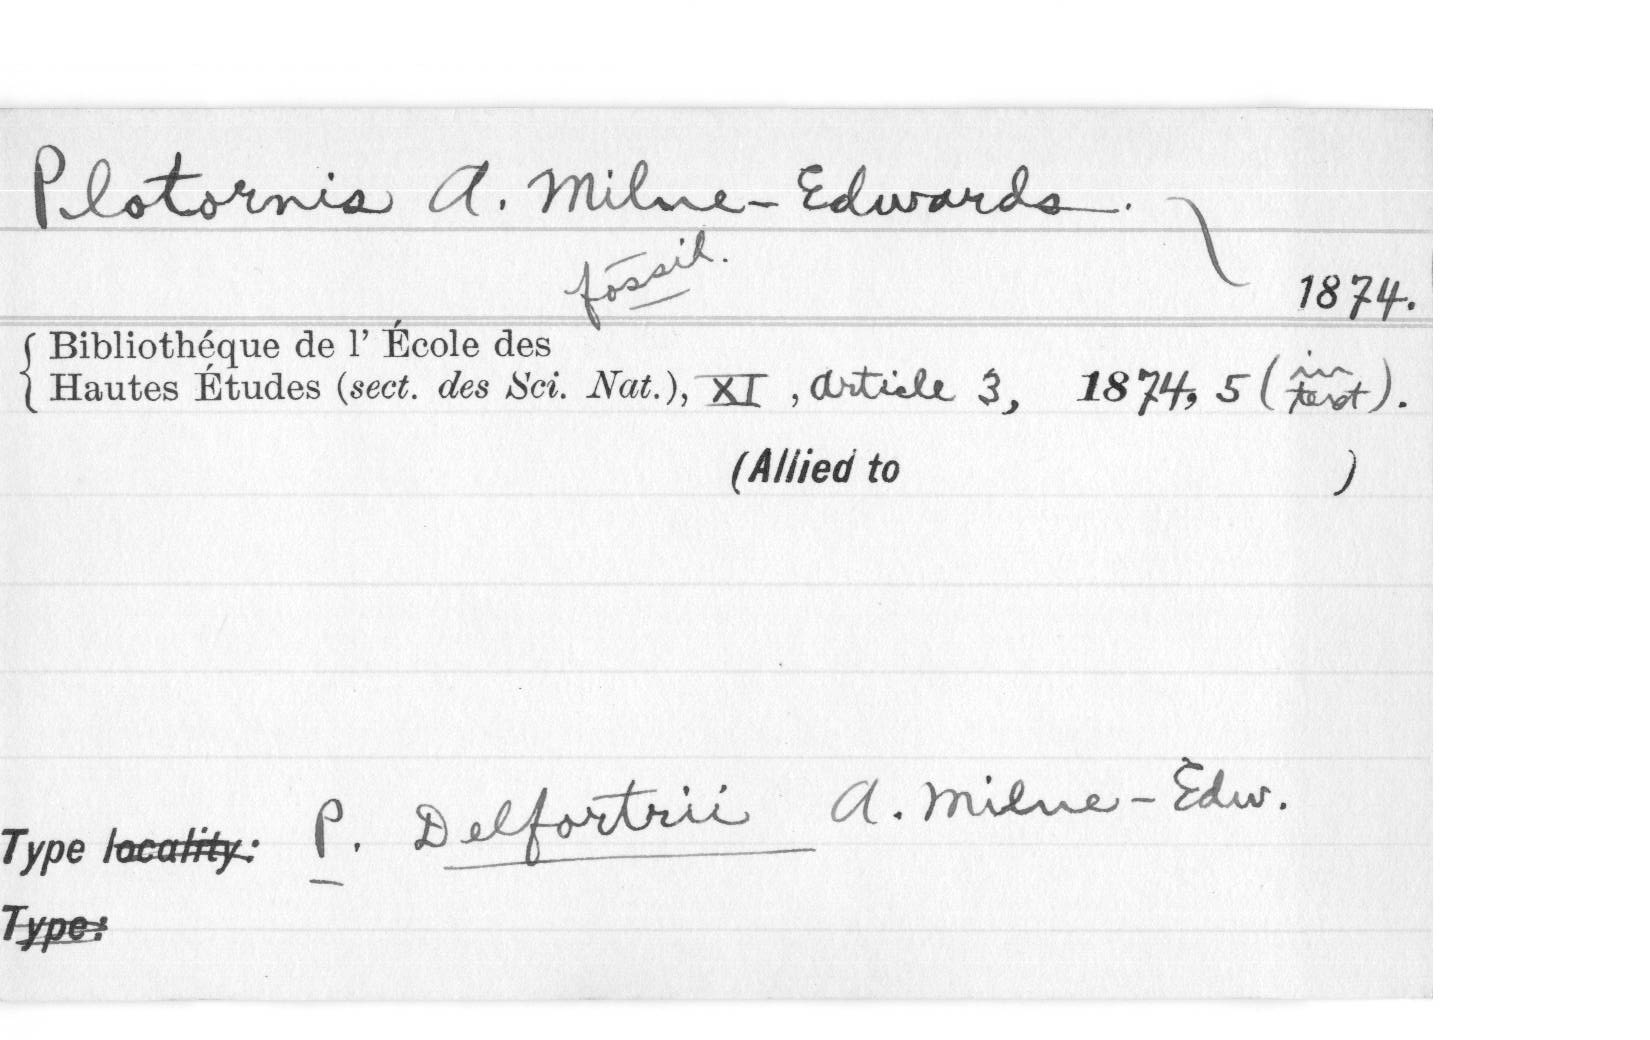 Plotornis A. Milne-Edwards.
fossil.
1874.
Bibliothéque de l' École des
Hautes Études (sect. des Sci. Nat.), XI, Article 3, 1874, 5 (in text).
(Allied to )
Type locality: P. Delfortrii A. Milne-Edw.
Type: